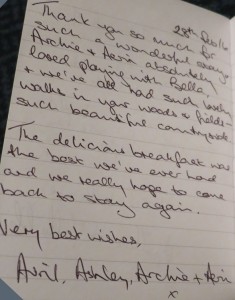 28th Oct 16
Thank you so much for
such a wonderful stay,
Archie + Aerin absolutely
loved playing with Bella,
+ we've all had such lovely
walks in your woods + fields -
such beautiful countryside
The delicious breakfast was
the best we've ever had
and we really hope to come
back to stay again.
Very best wishes,
Avril, Ashley, Archie + Aerin
x